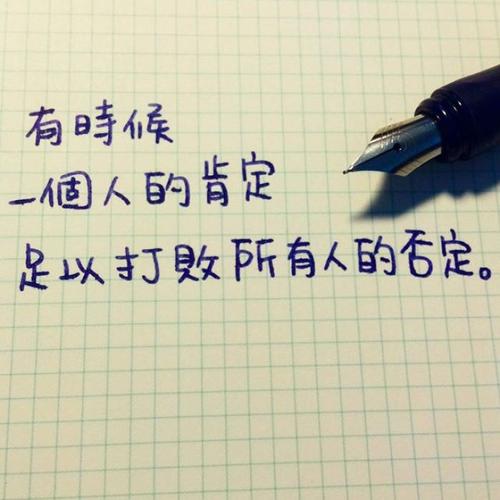 有時候
一個人的肯定
足以打敗所有人的否定。